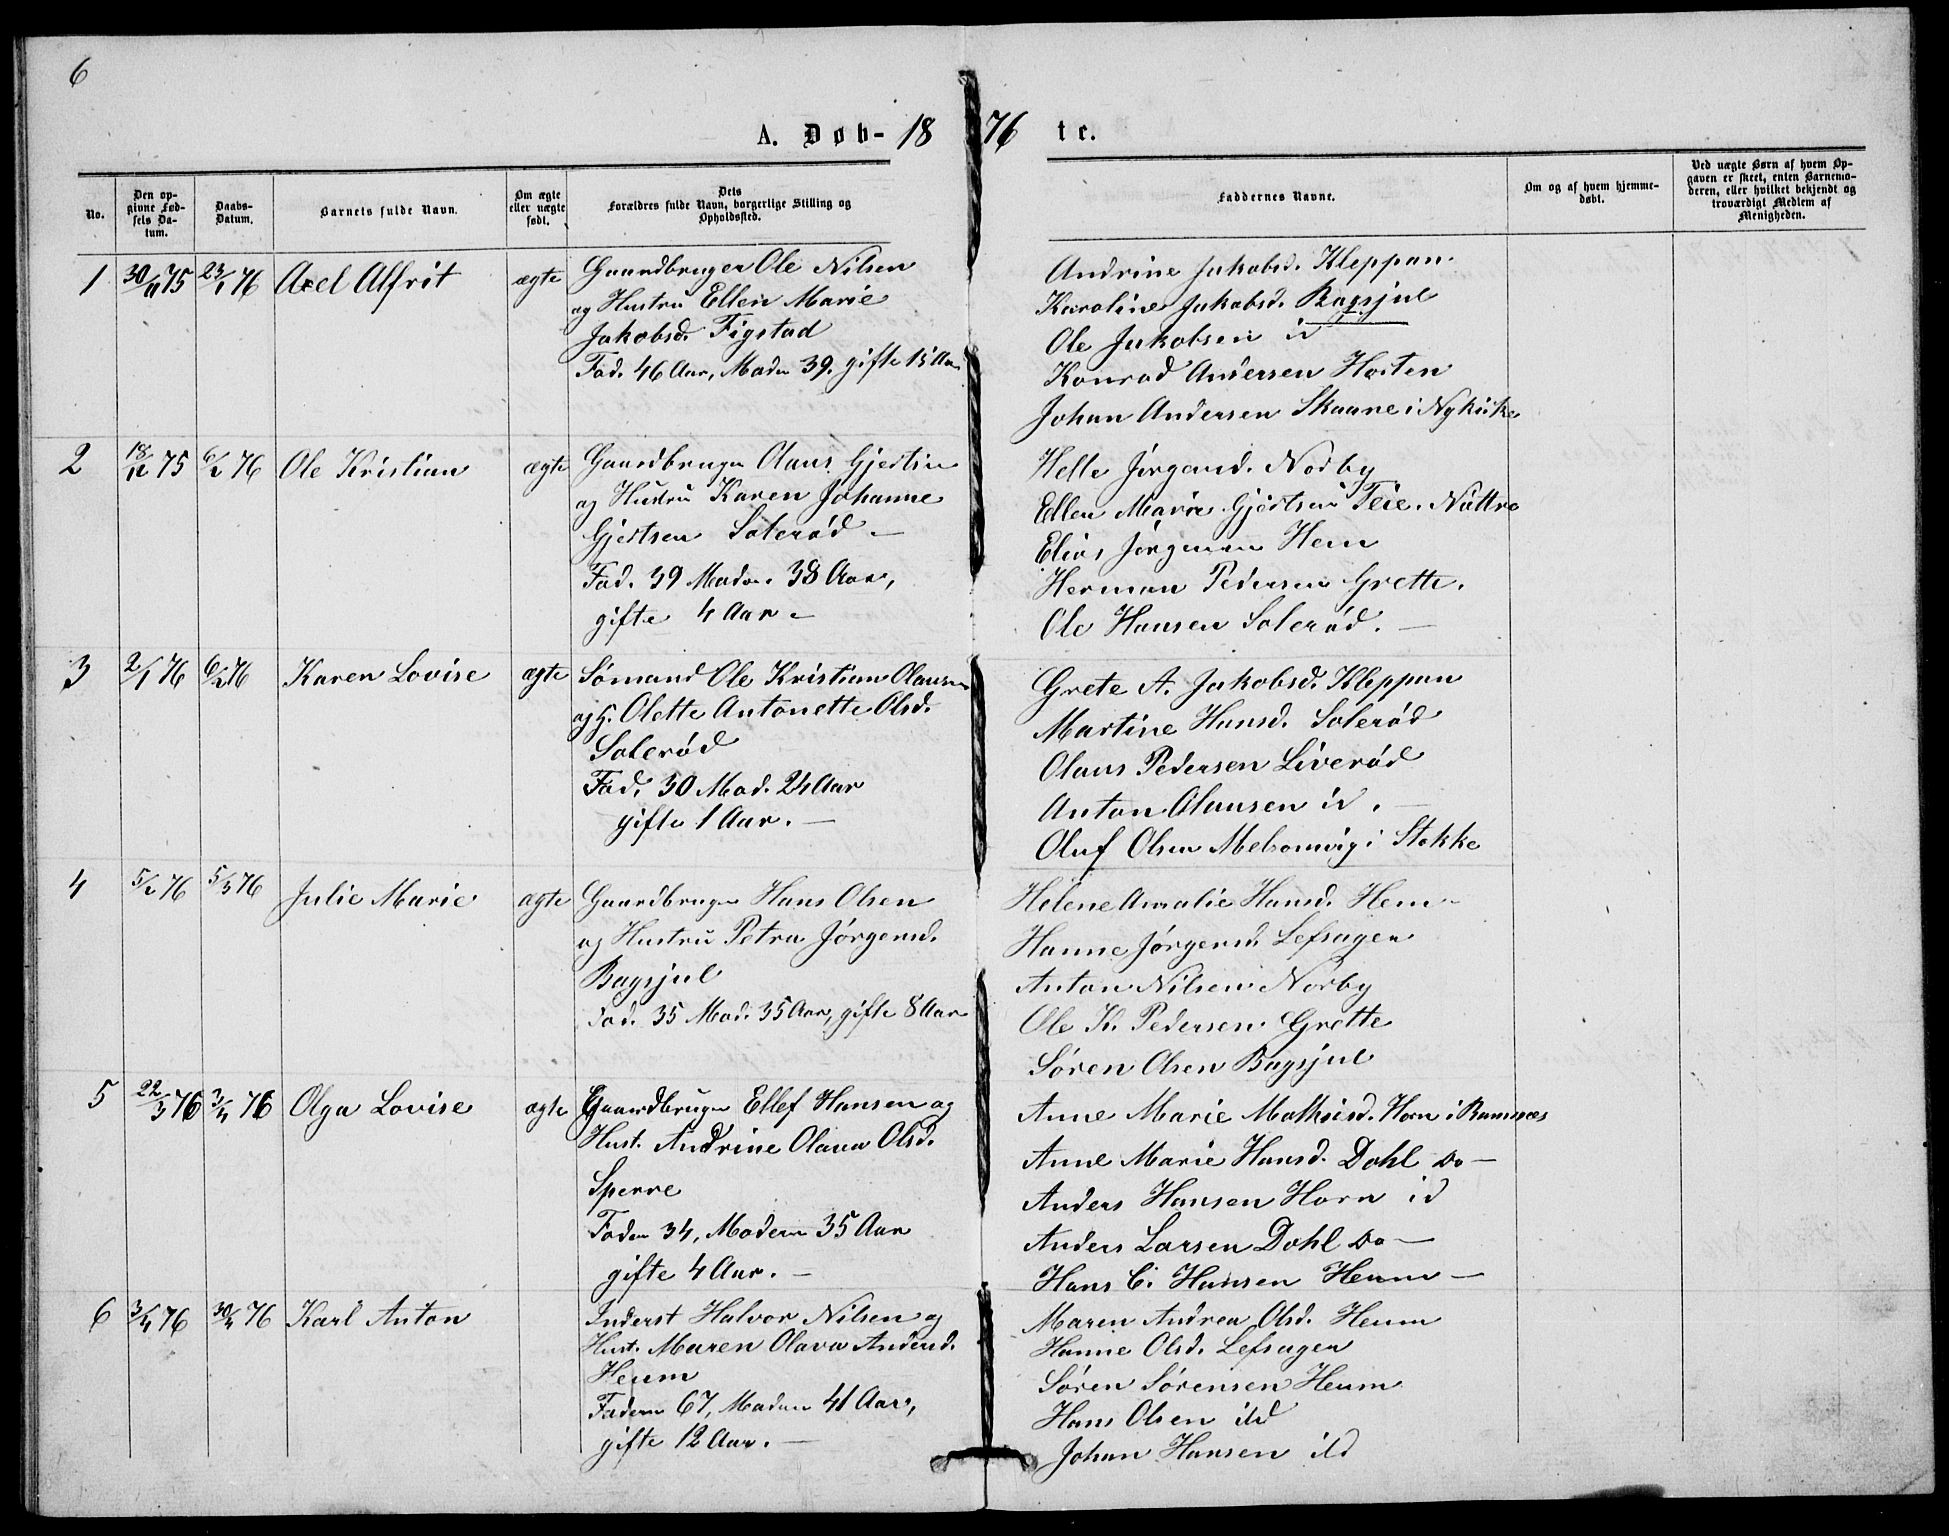 6
A. Døb- 18 76 te.
No.
Den opgivne Fødsels Datum.
Daabs-Datum.
Barnets fulde Navn.
Om ægte eller uægte født.
Dets Forældres fulde Navn, borgerlige Stilling og Opholdssted.
Faddernes Navne.
Om og af hvem hjemmedøbt.
Ved uægte Børn af hvem Opgaven er skeet, enten Barnemoderen, eller hvilket bekjendt og troværdigt Medlem af Menigheden.
1 30/11 75 23/1 76 Axel Alfrit ægte
Gaardbruger Ole Nilsen
og Hustru Ellen Marie
Jakobsd. Figstad
Fad. 46 Aar, Moder 39. gifte 15 Aar
Andrine Jakobsd. Kleppan.
Karoline Jakobsd. Bagsjul
Ole Jakobsen id
Konrad Andersen Hosten
Johan Andersen Skaane i Nykirke
2 18/12 75 6/2 76 Ole Kristian ægte
Gaardbruger Olaus Gjertsen
og Hustru Karen Johanne
Gjertsen Solerød –
Fad. 39 Moder. 38 Aar,
gifte 4 Aar –
Helle Jørgensd. Norby
Ellen Marie Gjertsen Teie. Nøttrø
Elias Jørgensen Hem
Herman Pedersen Grette.
Ole Hansen Solerød. –
3 2/1 76 6/2 76 Karen Lovise ægte
Sømand Ole Kristian Olausen
og H. Olette Antonette Olsd.
Solerød
Fad. 30 Mod. 24 Aar
gifte 1 Aar. –
Grete A. Jakobsd. Kleppan
Martine Hansd. Solerød
Olaus Pedersen Liverød
Anton Olausen id. –
Oluf Olsen Melsomvig i Stokke
4 5/2 76 5/3 76 Julie Marie ægte
Gaardbruger Hans Olsen
og Hustru Petra Jørgensd.
Bagsjul
Fad. 35 Mod. 35 Aar, gifte 8 Aar
Helene Amalie Hansd. Hem –
Hanne Jørgensd. Lefsagen
Anton Nilsen Norby
Ole K. Pedersen Grette
Søren Olsen Bagsjul
5 22/3 76 3/4 76 Olga Lovise ægte
Gaardbruger Ellef Hansen og
Hust. Andrine Olava Olsd.
Sperre
Faderen 34, Moderen 35 Aar
gifte 4 Aar. –
Anne Marie Mathisd. Horn i Ramnæs
Anne Marie Hansd. Dohl Do –
Anders Hansen Horn id
Anders Larsen Dohl Do –
Hans C. Hansen Heum –
6 3/4 76 30/4 76 Karl Anton
Inderst Halvor Nilsen og
Hust. Maren Olava Andersd.
Heum
Faderen 67, Moderen 41 Aar,
gifte 12 Aar. –
Maren Andrea Olsd. Heum
Hanne Olsd. Lefsagen
Søren Sørensen Heum
Hans Olsen ibd
Johan Hansen ibd